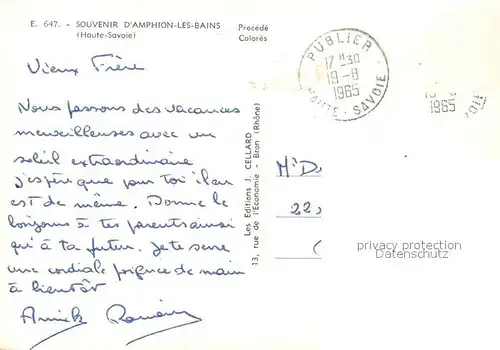 E. 647. - SOUVENIR D'AMPHION-LES-BAINS
(Haute-Savoie)
Procédé
Colorès
Vieux Frère
Nous passons des vacances
merveilleuses avec un
soleil extraordinaire
j'espère que pour toi il en
est de même. Donne le
bonjour à tes parents ainsi
qu'à ta future. Je te serre
une cordiale poignée de main
à bientôt
Annick
Les Editions J. CELLARD
13, rue de l'Economie - Bron (Rhône)
PUBLIER
17H30
19-8
1965
HAUTE-SAVOIE
1965
Mr D
22,
privacy protection
Datenschutz